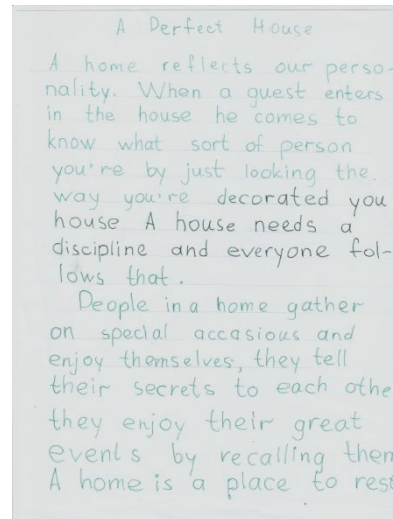 A Perfect House
A home reflects our perso-
nality. When a guest enters
in the house he comes to
know what sort of person
you're by just looking the
way you're decorated you
house A house needs a
discipline and everyone fol-
lows that.
People in a home gather
on special accasious and
enjoy themselves, they tell
their secrets to each othe
they enjoy their great
events by recalling then
A home is a place to rest